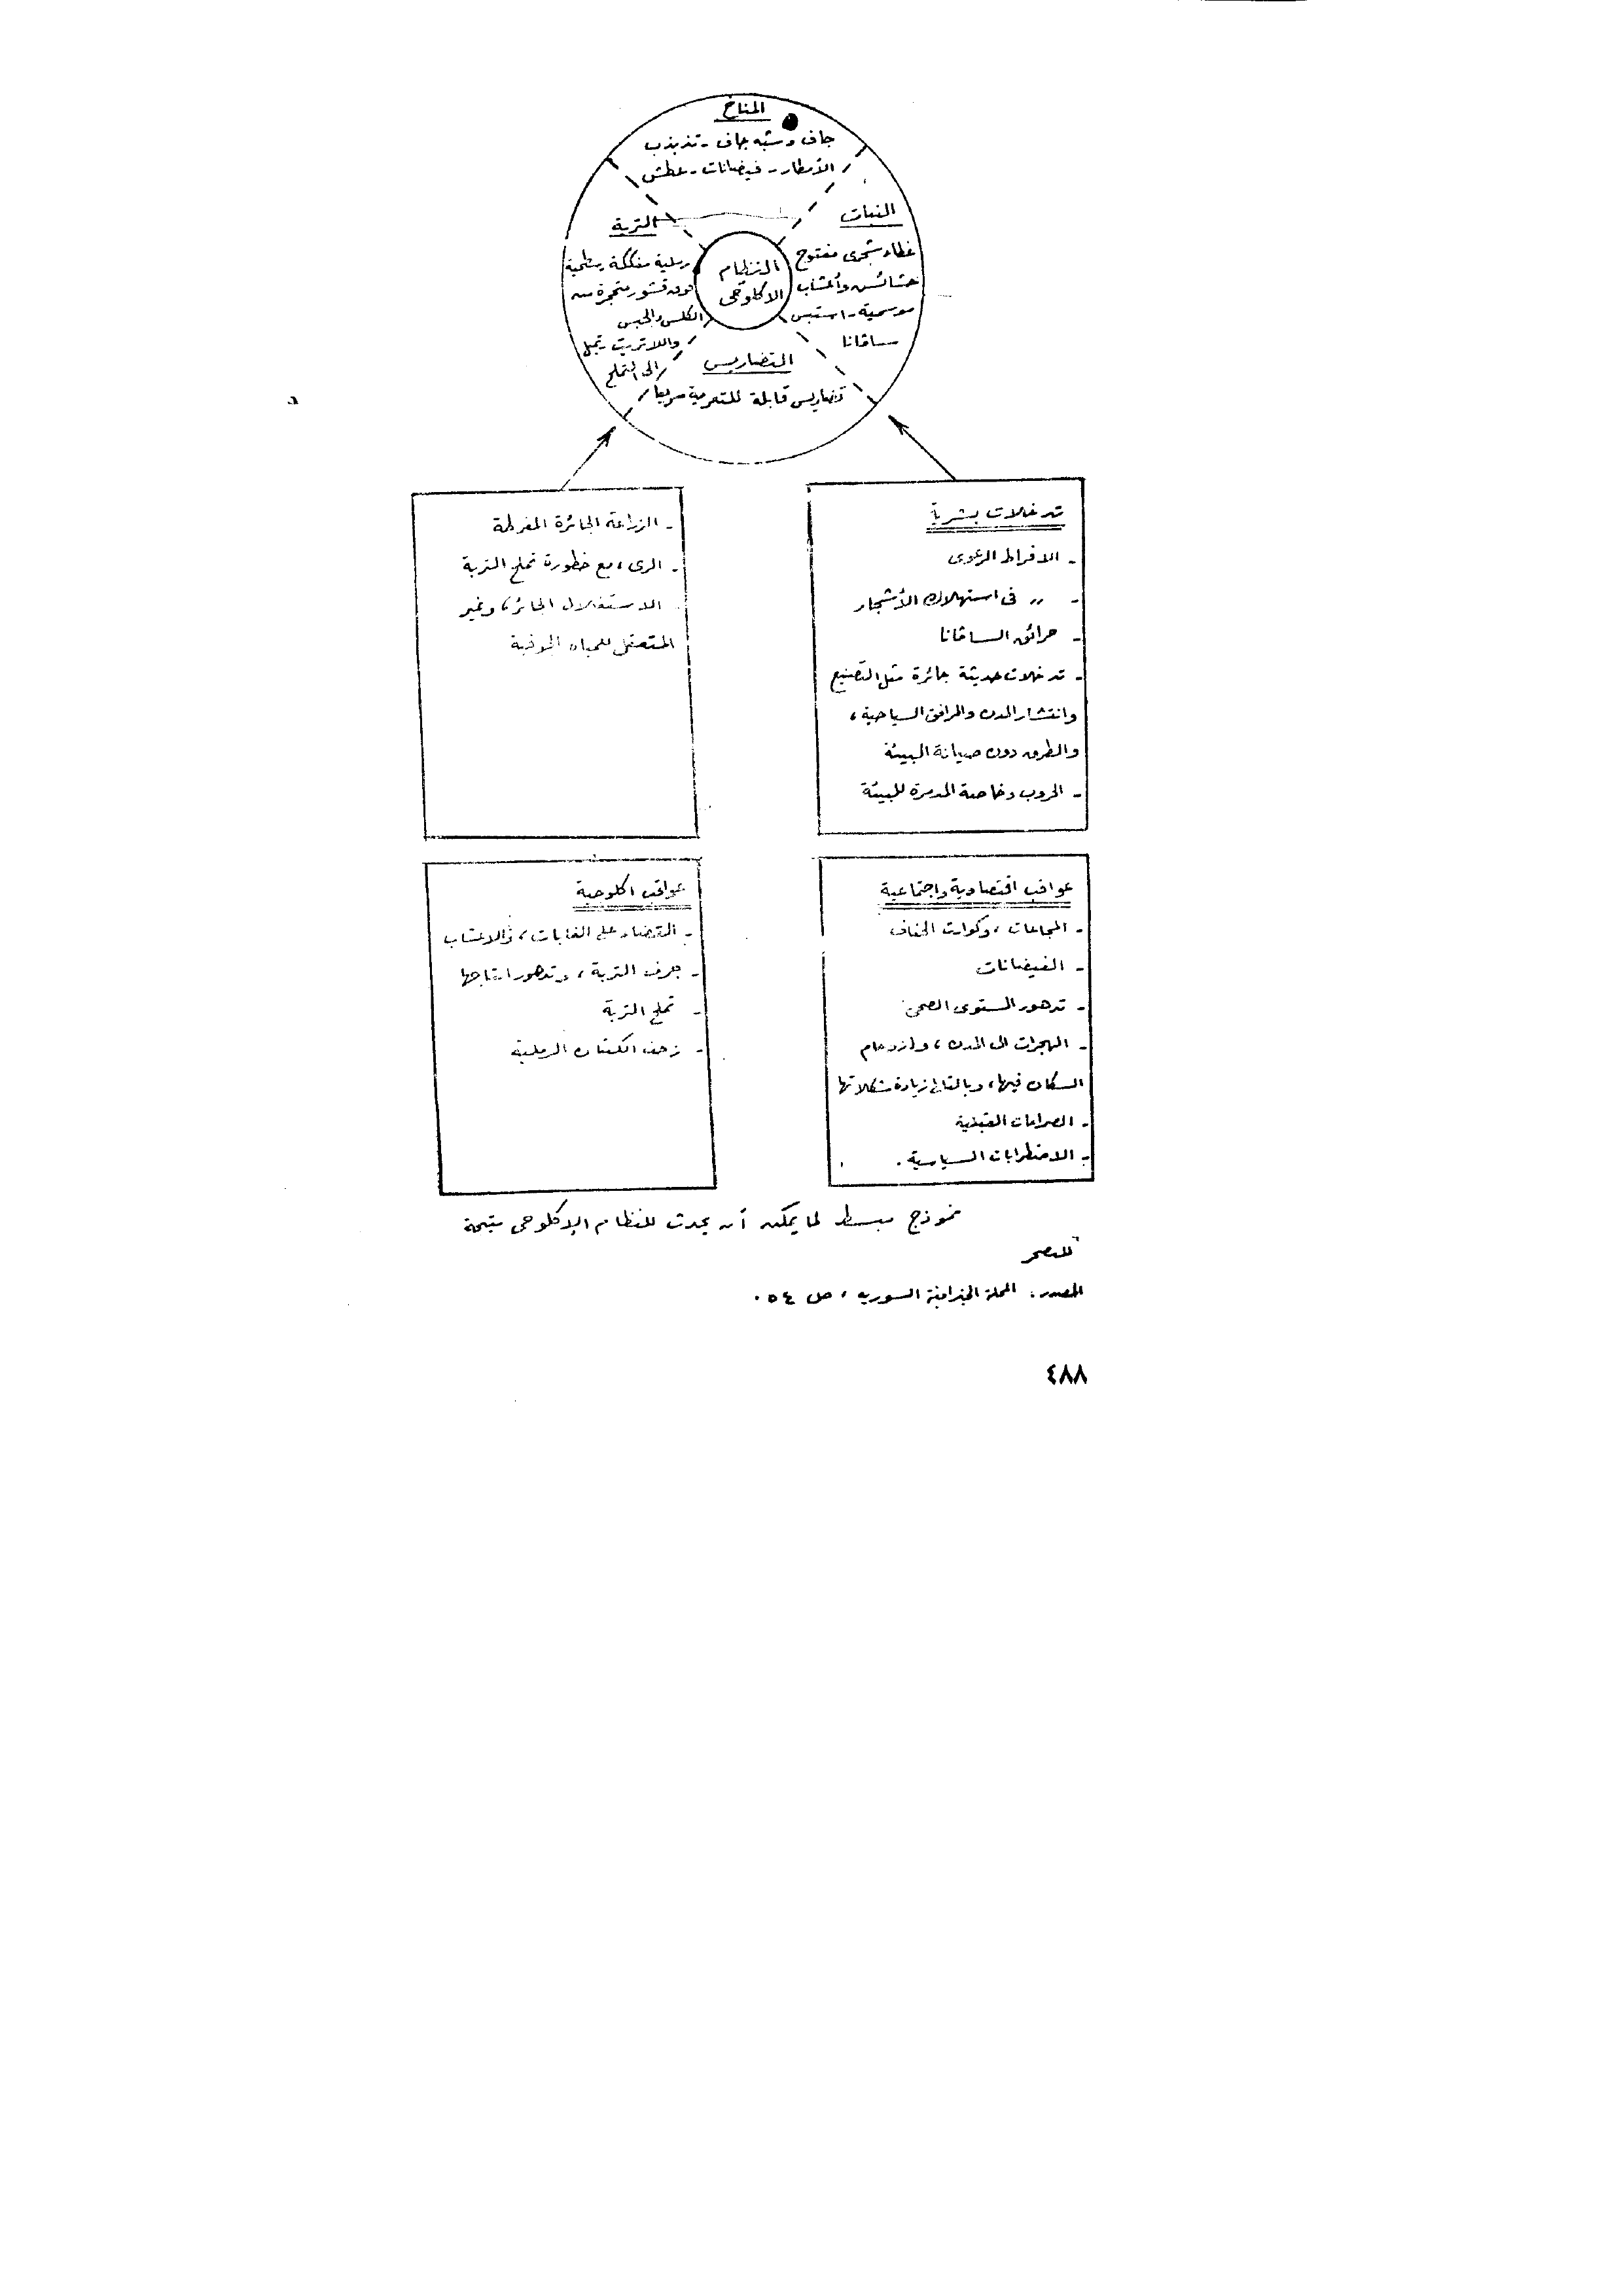 المناخ
جاف وشبه جاف - تذبذب
الأمطار - فيضانات - عطش
النبات
غطاء شجرى مفتوح
حشائش وأعشاب
موسمية - استبس
ساڤانا
التربة
رملية مفككة سطحية
فوق قشور متحجرة من
الكلس والجبس
واللاتريت تميل
إلى التملح
النظام
الاكلوجى
التضاريس
تضاريس قابلة للتعرية سريعا
تدخلات بشرية
- الافراط الرعوى
- 〃 فى استهلاك الأشجار
- حرائق الساڤانا
- تدخلات حديثة جائرة مثل التصنيع
وانتشار المدن والمرافق السياحية ،
والطرق دون صيانة البيئة
- الحروب وخاصة المدمرة للبيئة
- الزراعة الجائرة المفرطة
- الرى ، مع خطورة تملح التربة
- الاستغلال الجائر ، وغير
المتعقل للمياه الجوفية
عواقب اقتصادية واجتماعية
- المجاعات ، وكوارث الجفاف
- الفيضانات
- تدهور المستوى الصحى
- الهجرات الى المدن ، وازدحام
السكان فيها ، وبالتالى زيادة مشكلاتها
- الصراعات القبلية
- الاضطرابات السياسية .
عواقب اكلوجية
- القضاء على الغابات ، والاعشاب
- جرف التربة ، وتدهور انتاجها
- تملح التربة
- زحف الكثبان الرملية
نموذج مبسط لما يمكن أن يحدث للنظام الإكلوجى نتيجة
للتصحر
المصدر : المجلة الجغرافية السورية ، ص ٥٤ .
٤٨٨